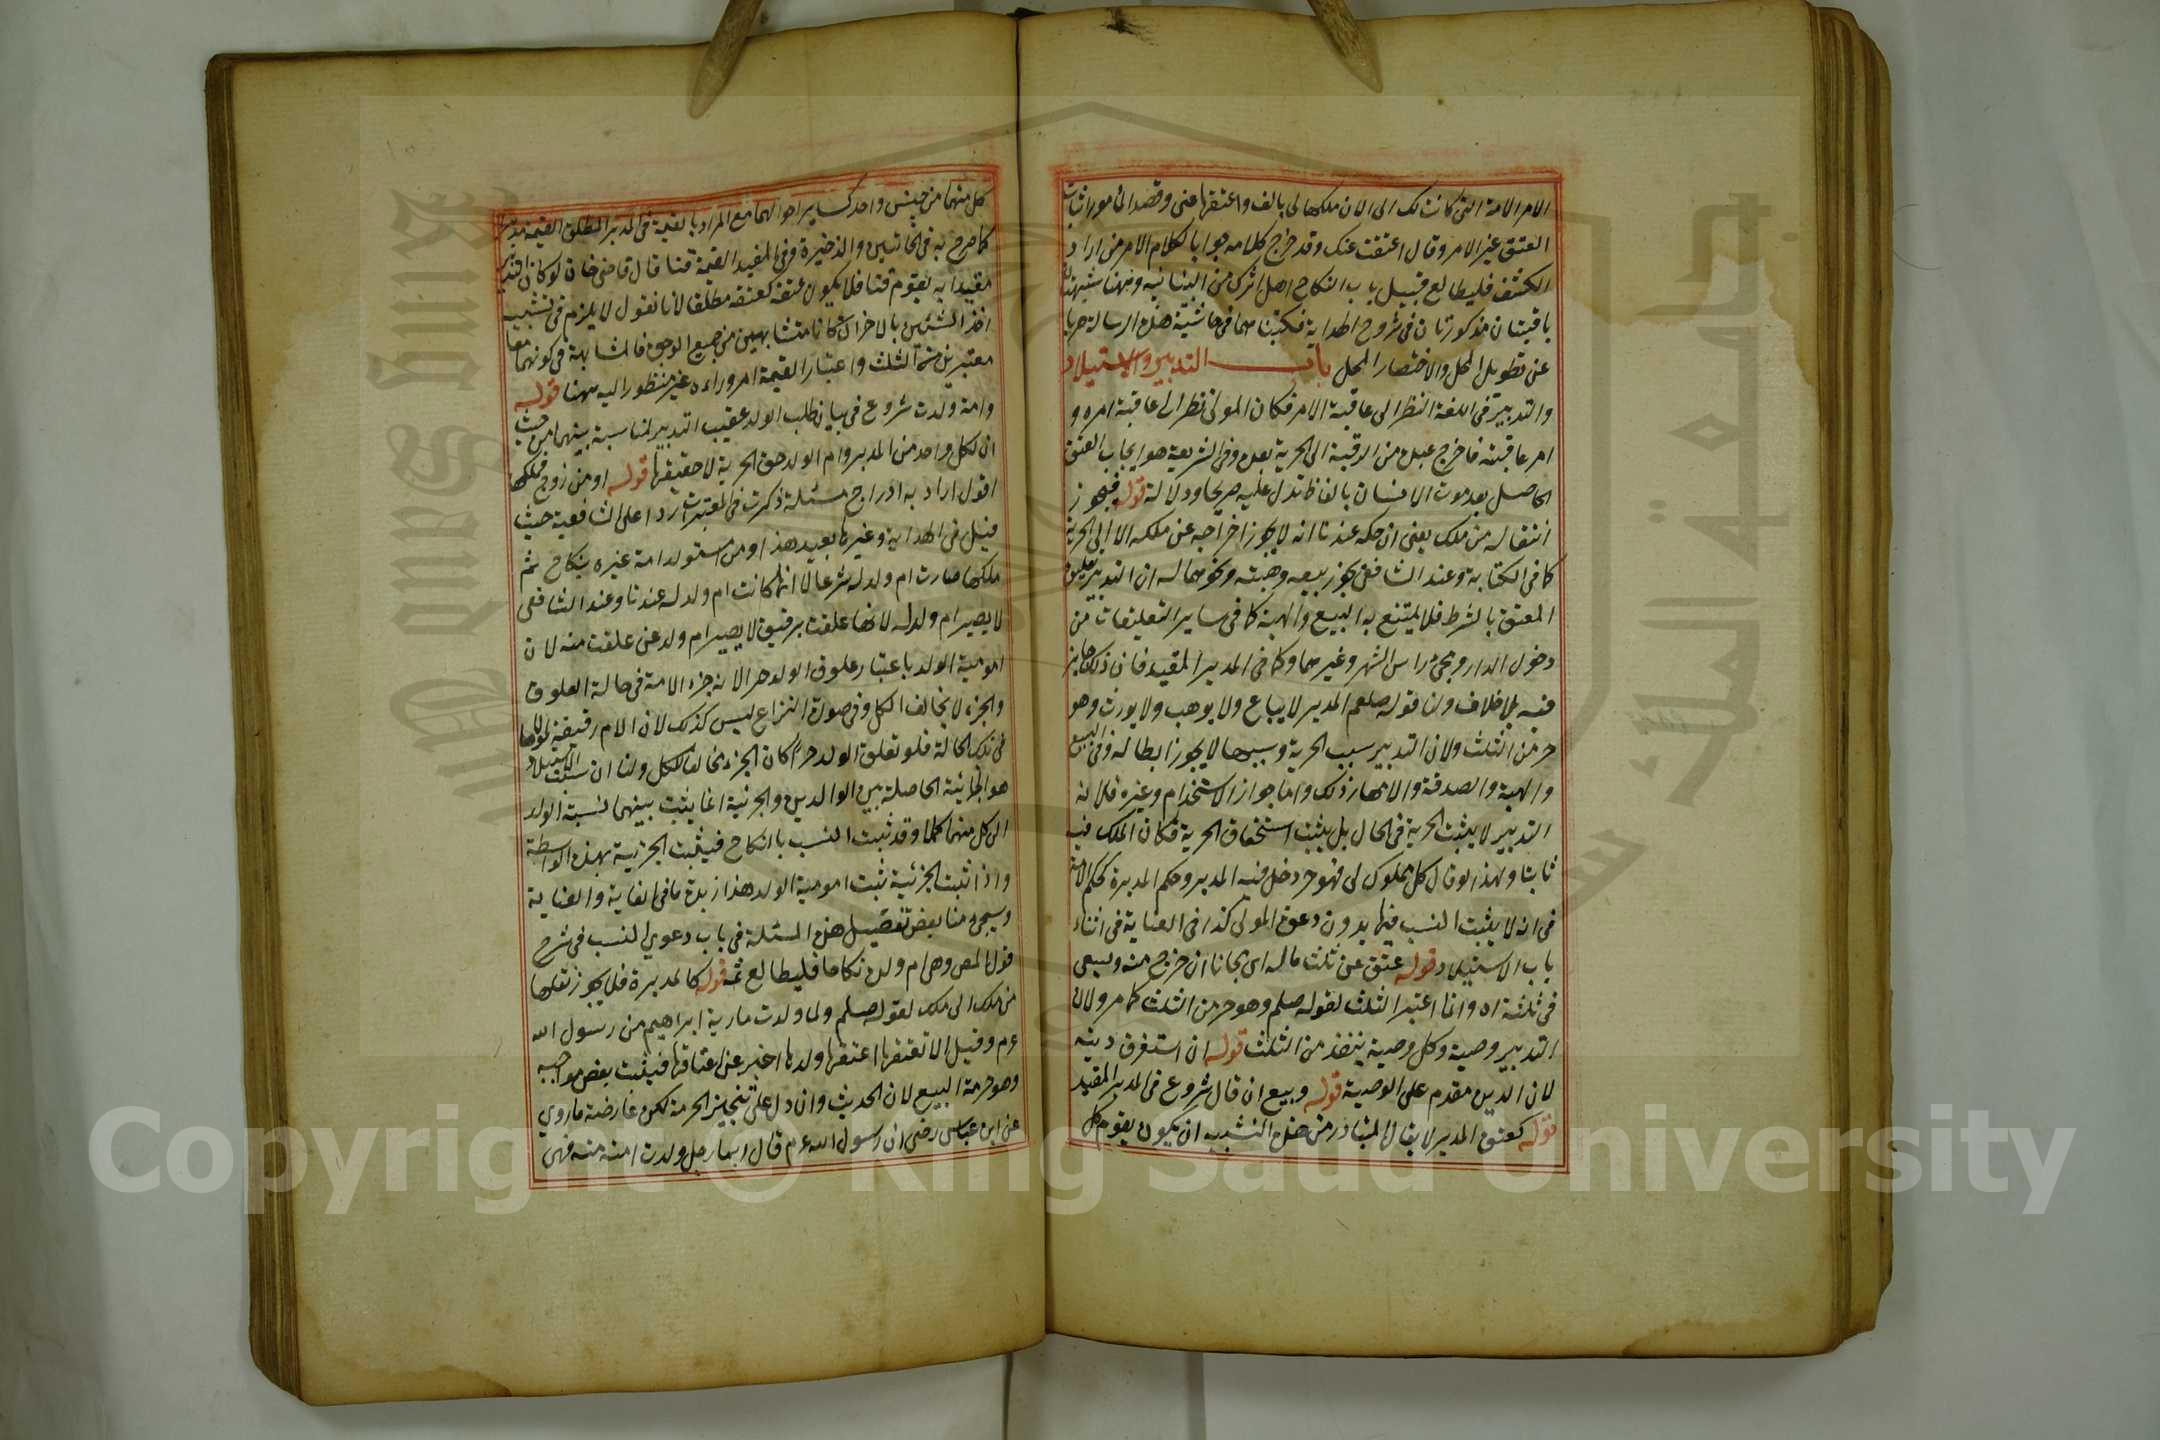 الامر الامة التى كانت لك الى الان ملكها لى بالف واعتقها عنى وقصد المأمور اثبات
العتق عن الامر وقال اعتقت عنك وقد خرج كلامه جوابا لكلام الامر من اراد
الكشف فليطالع قبيل باب النكاح اهل الشرك من النهاية وههنا شبهتان
باقيتان مذكورتان فى شروح الهداية فكتبناهما فى حاشية هذه الرسالة هربا
عن تطويل المخل والاختصار المخل باب التدبير والاستيلاد
والتدبير فى اللغة النظر الى عاقبة الامر فكان المولى نظر الى عاقبة امره و
امر عاقبته فاخرج عبده من الرقية الى الحرية بعده وفى الشريعة هو ايجاب العتق
الحاصل بعد موت الانسان بالفاظ تدل عليه صريحا ودلالة قوله فيجوز
انتقاله من ملك يعنى ان حكمه عندنا انه لا يجوز اخراجه عن ملكه الا الى الحرية
كما فى الكتابة وعند الشافعى يجوز بيعه وهبته ونحوهما له ان التدبير تعليق
العتق بالشرط فلا يمتنع به البيع والهبة كما فى ساير التعليقات من
دخول الدار ومجئ رأس الشهر وغيرهما وكما فى المدبر المقيد فان ذلك جايز
فيه بلا خلاف ولنا قوله صلعم المدبر لا يباع ولا يوهب ولا يورث وهو
حر من الثلث ولان التدبير سبب الحرية وسببها لا يجوز ابطاله وفى البيع
والهبة والصدقة والامهار ذلك واما جواز الاستخدام وغيره فلانه
التدبير لا يثبت الحرية فى الحال بل يثبت استحقاق الحرية فكان الملك فيه
ثابتا ولهذا لو قال كل مملوك لى فهو حر دخل فيه المدبر وحكم المدبرة كحكم الامة
فى انه لا يثبت النسب فيها بدون دعوة المولى كذا فى العناية فى اثناء
باب الاستيلاد قوله عتق عن ثلث ماله اى مجانا ان خرج منه ويسعى
فى ثلثيه اه وانما اعتبر الثلث لقوله صلعم وهو حر من الثلث كما مر ولان
التدبير وصية وكل وصية ينفذ من الثلث قوله ان استغرق دينه
لان الدين مقدم على الوصية قوله وبيع ان قال شروع فى المدبر المقيد
قوله كعتق المدبر لا يقال المتبادر من هذه التشبيه ان يكون يقوم كل
كل منهما من جنس واحد كساير احوالهما مع المراد بالقيمة فى المدبر المطلق القيمة مدبرا
كما صرح به فى الخانتين والذخيرة وفى المقيد القيمة قنا قال قاضى خان لو كان التدبير
مقيدا به يقوم قنا فلا يكون عتقه كعتقه مطلقا لانا نقول لا يلزم فى تشبيه
احد الشيئين بالاخر ان كانا متشابهين من جميع الوجوه فالمشابهة فى كونهما معا
معتبرين من الثلث واعتبار القيمة امر وراءه غير منظور اليه ههنا قوله
وامة ولدت شروع فى بيان طلب الولد عقيب التدبير لمناسبة بينهما من حيث
ان لكل واحد من المدبر وام الولد حق الحرية لا حقيقتها قوله او من زوج فملكها
اقول اراد به ادراج مسئلة ذكرت فى المعتبرات ردا على الشافعية حيث
قيل فى الهداية وغيرها بعيد هذا ومن استولد امة غيره بنكاح ثم
ملكها صارت ام ولد له شرعا لا انها كانت ام ولد له عندنا وعند الشافعى
لا يصير ام ولد له لانها علقت برقيق لا يصير ام ولد عن علقت منه لان
امومية الولد باعتبار علوق الولد حرا لانه جزء الامة فى حالة العلوق
والجزء لا يخالف الكل وفى صورة النزاع ليس كذلك لان الام رقيقة لمولاها
فى تلك الحالة فلو تعلق الولد حرا كان الجزء مخالفا للكل ولنا ان سبب الاستيلاد
هو الجزئية الحاصلة بين الوالدين والجزئية انما يثبت بينهما لنسبة الولد
الى كل منهما كملا وقد ثبت النسب بالنكاح فيثبت الجزئية بهذه الواسطة
واذا ثبت الجزئية ثبت امومية الولد هذا زبدة ما فى الغاية والعناية
وسيجئ منا بعض تفصيل هذه المسئلة فى باب دعوى النسب فى شرح
قول المص وهى ام ولده نكاحا فليطالع ثمه قوله كالمدبرة فلا يجوز نقلها
من ملك الى ملك لقوله صلعم ولما ولدت مارية ابراهيم من رسول الله
عم وقيل الا تعتقها اعتقها ولدها اخبر عن اعتاقها فيثبت بعض مواجبه
وهو حرمة البيع لان الحديث وان دل على تنجيز الحرمة لكن عارضة ما روى
عن ابن عباس رضى ان رسول الله عم قال ايما رجل ولدت امته منه فهى
Copyright © King Saud University